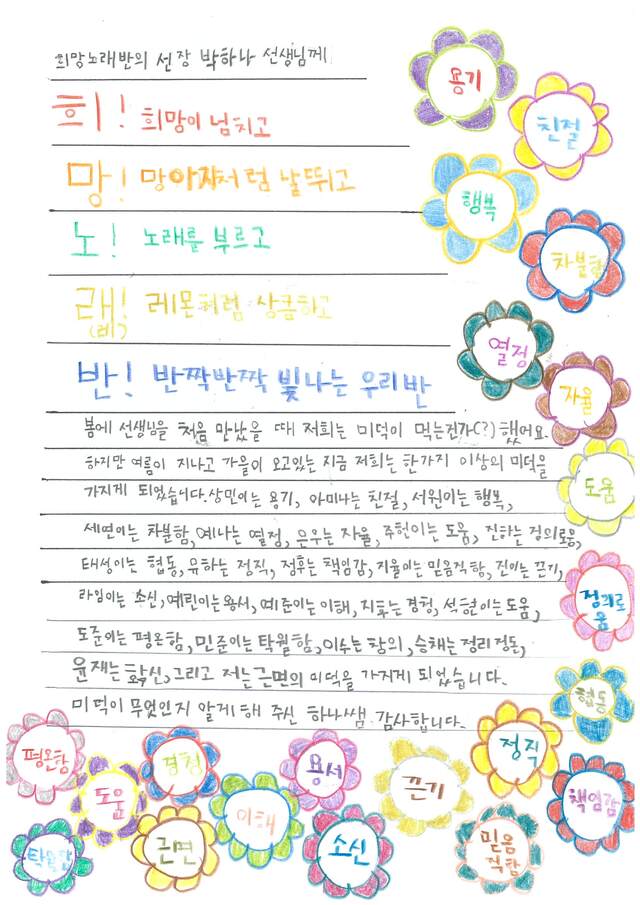 희망노래반의 선장 박하나 선생님께
희! 희망이 넘치고
망! 망아지처럼 날뛰고
노! 노래를 부르고
래! 레몬처럼 상큼하고
(레)
반! 반짝반짝 빛나는 우리반
봄에 선생님을 처음 만났을 때 저희는 미덕이 먹는건가(?) 했어요.
하지만 여름이 지나고 가을이 오고있는 지금 저희는 한가지 이상의 미덕을
가지게 되었습니다. 상민이는 용기, 아미나는 친절, 서원이는 행복,
세연이는 차분함, 예나는 열정, 은우는 자율, 주헌이는 도움, 진하는 정의로움,
태성이는 협동, 유하는 정직, 정후는 책임감, 지율이는 믿음직함, 진이는 끈기,
라임이는 소신, 예린이는 용서, 예준이는 이해, 지효는 경청, 석현이는 도움,
도준이는 평온함, 민준이는 탁월함, 이수는 창의, 승채는 정리정돈,
윤재는 확신, 그리고 저는 근면의 미덕을 가지게 되었습니다.
미덕이 무엇인지 알게 해 주신 하나쌤 감사합니다.
용기
친절
행복
차분함
열정
자율
도움
정의로
움
협동
정직
책임감
평온함
도움
경청
용서
끈기
이해
탁월함
근면
소신
믿음
직함